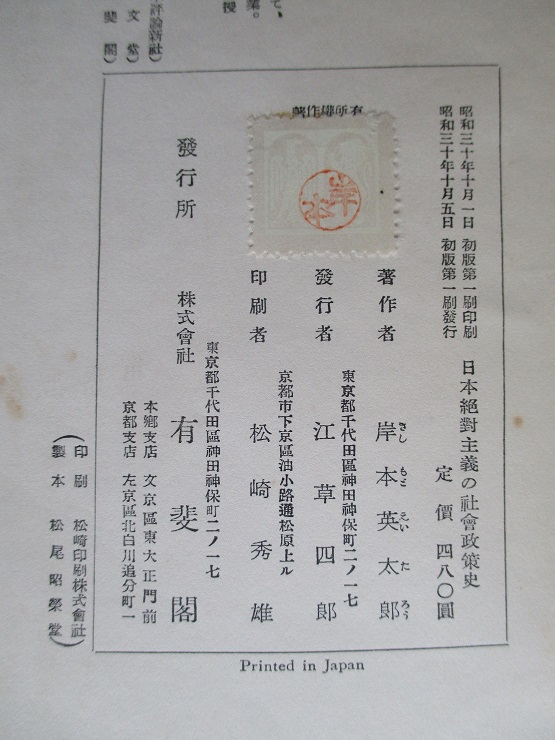 昭和三十年十月一日 初版第一刷印刷
昭和三十年十月五日 初版第一刷發行
日本絕對主義の社會政策史
定價 四八〇圓
著作者 岸本英太郎
きし もと えい た ろう
東京都千代田區神田神保町二ノ一七
發行者 江草四郎
京都市下京區油小路通松原上ル
印刷者 松崎秀雄
著作權所有
岸本
東京都千代田區神田神保町二ノ一七
發行所 株式會社 有斐閣
本鄉支店 文京區東大正門前
京都支店 左京區北白川追分町一
印刷 松崎印刷株式會社
製本 松尾昭榮堂
Printed in Japan
て、
業。
授
評論新社)
文堂)
斐閣)